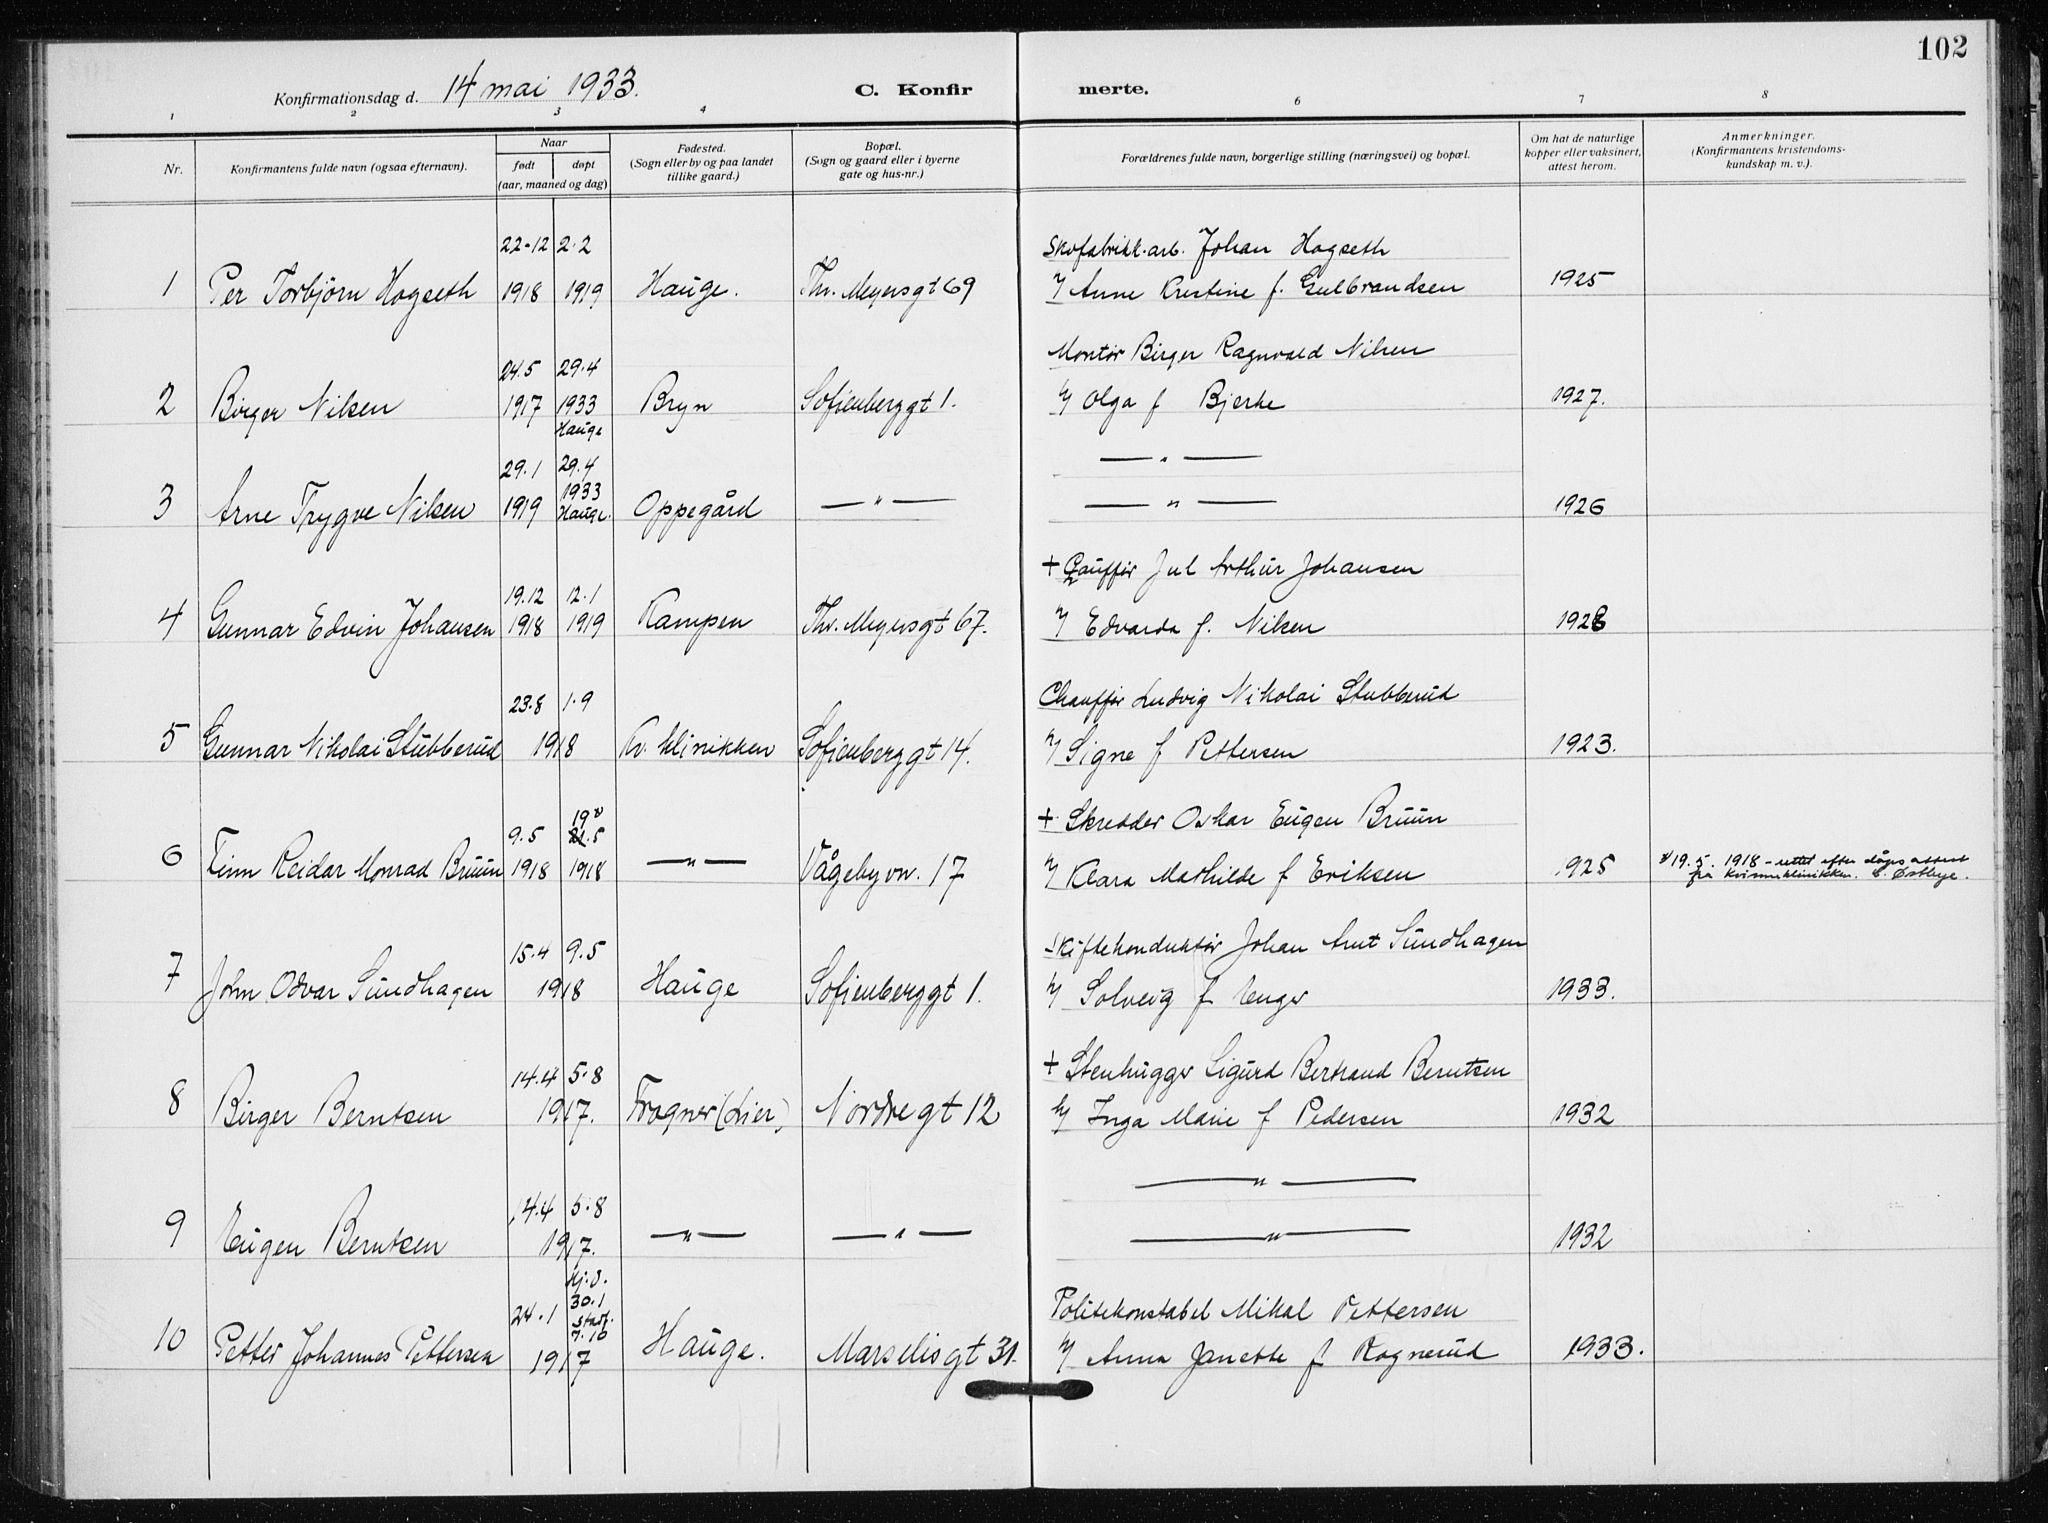 102
Konfirmationsdag d. 14 mai 1933.
C. Konfirmerte.
1 2 3 4 6 7 8
Nr.
Konfirmantens fulde navn (ogsaa efternavn).
Naar
født døpt
(aar, maaned og dag)
Fødested.
(Sogn eller by og paa landet
tillike gaard.)
Bopæl.
(Sogn og gaard eller i byerne
gate og hus-nr.)
Forældrenes fulde navn, borgerlige stilling (næringsvei) og bopæl.
Om hat de naturlige
kopper eller vaksinert,
attest herom.
Anmerkninger.
(Konfirmantens kristendoms-
kundskap m. v.).
22-12 2.2 Skofabrikk.arb. Johan Hogseth
1 Per Torbjørn Hogseth 1918 1919 Hauge. Thv. Meyersgt 69 Anne Kristine f. Gulbrandsen 1925
24.5 29.4 Montør Birger Ragnvald Nilsen
2 Birger Nilsen 1917 1933 Bryn Sofienberggt 1. Olga f Bjerke 1927.
Hauge
29.1 29.4 — " —
1933
3 Arne Trygve Nilsen 1919 Hauge. Oppegård — " — — " — 1926
19.12 12.1 + Chauffør Jul Arthur Johansen
4 Gunnar Edvin Johansen 1918 1919 Kampen Thv. Meyersgt 67. Edvarda f. Nilsen 1928
23.8 1.9 Chauffør Ludvig Nikolai Stubberud
5 Gunnar Nikolai Stubberud 1918 Kv. klinikken Sofienberggt 14. Signe f Pettersen 1923.
19
9.5 21.5 + Skredder Oskar Eugen Bruun
6 Finn Reidar Monrad Bruun 1918 1918 — " — Vågebyvn. 17 Klara Mathilde f Eriksen 1925 19.5. 1918 - rettet efter dåpsattest
fra Kvinneklinikken. C. Østbye.
15.4 9.5 Skiftekonduktør Johan Arnt Sundhagen
7 John Odvar Sundhagen 1918 Hauge Sofienberggt 1. Solveig f Unger 1933.
14.4 5.8 + Stenhugger Sigurd Bertrand Berntsen
8 Birger Berntsen 1917. Frogner (Lier) Nordregt 12 Inga Marie f Pedersen 1932
— " —
14.4 5.8
9 Eugen Berntsen 1917. — " — — " — — " — 1932
Hj.d.
30.1 Politikonstabel Mikal Pettersen
24.1 stadf.
7.10
10 Petter Johannes Pettersen 1917 Hauge. Marselisgt 31. Anna Janette f Rognerud 1933.